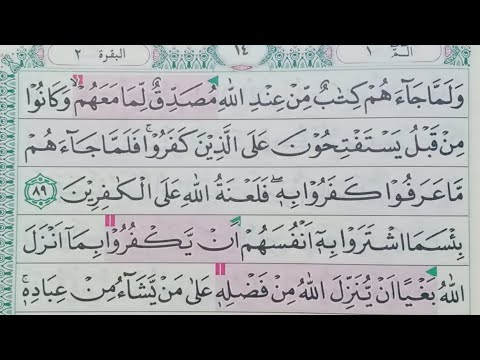 الٓمّٓ ١ ١٤ البقرة ٢
وَلَمَّا جَآءَهُمْ كِتٰبٌ مِّنْ عِنْدِ اللّٰهِ مُصَدِّقٌ لِّمَا مَعَهُمْ ۙ وَكَانُوْا
مِنْ قَبْلُ يَسْتَفْتِحُوْنَ عَلَى الَّذِيْنَ كَفَرُوْا ۚ فَلَمَّا جَآءَهُمْ
مَّا عَرَفُوْا كَفَرُوْا بِهٖ ۖ فَلَعْنَةُ اللّٰهِ عَلَى الْكٰفِرِيْنَ ٨٩
بِئْسَمَا اشْتَرَوْا بِهٖٓ اَنْفُسَهُمْ اَنْ يَّكْفُرُوْا بِمَآ اَنْزَلَ
اللّٰهُ بَغْيًا اَنْ يُّنَزِّلَ اللّٰهُ مِنْ فَضْلِهٖ عَلٰى مَنْ يَّشَآءُ مِنْ عِبَادِهٖ ۚ